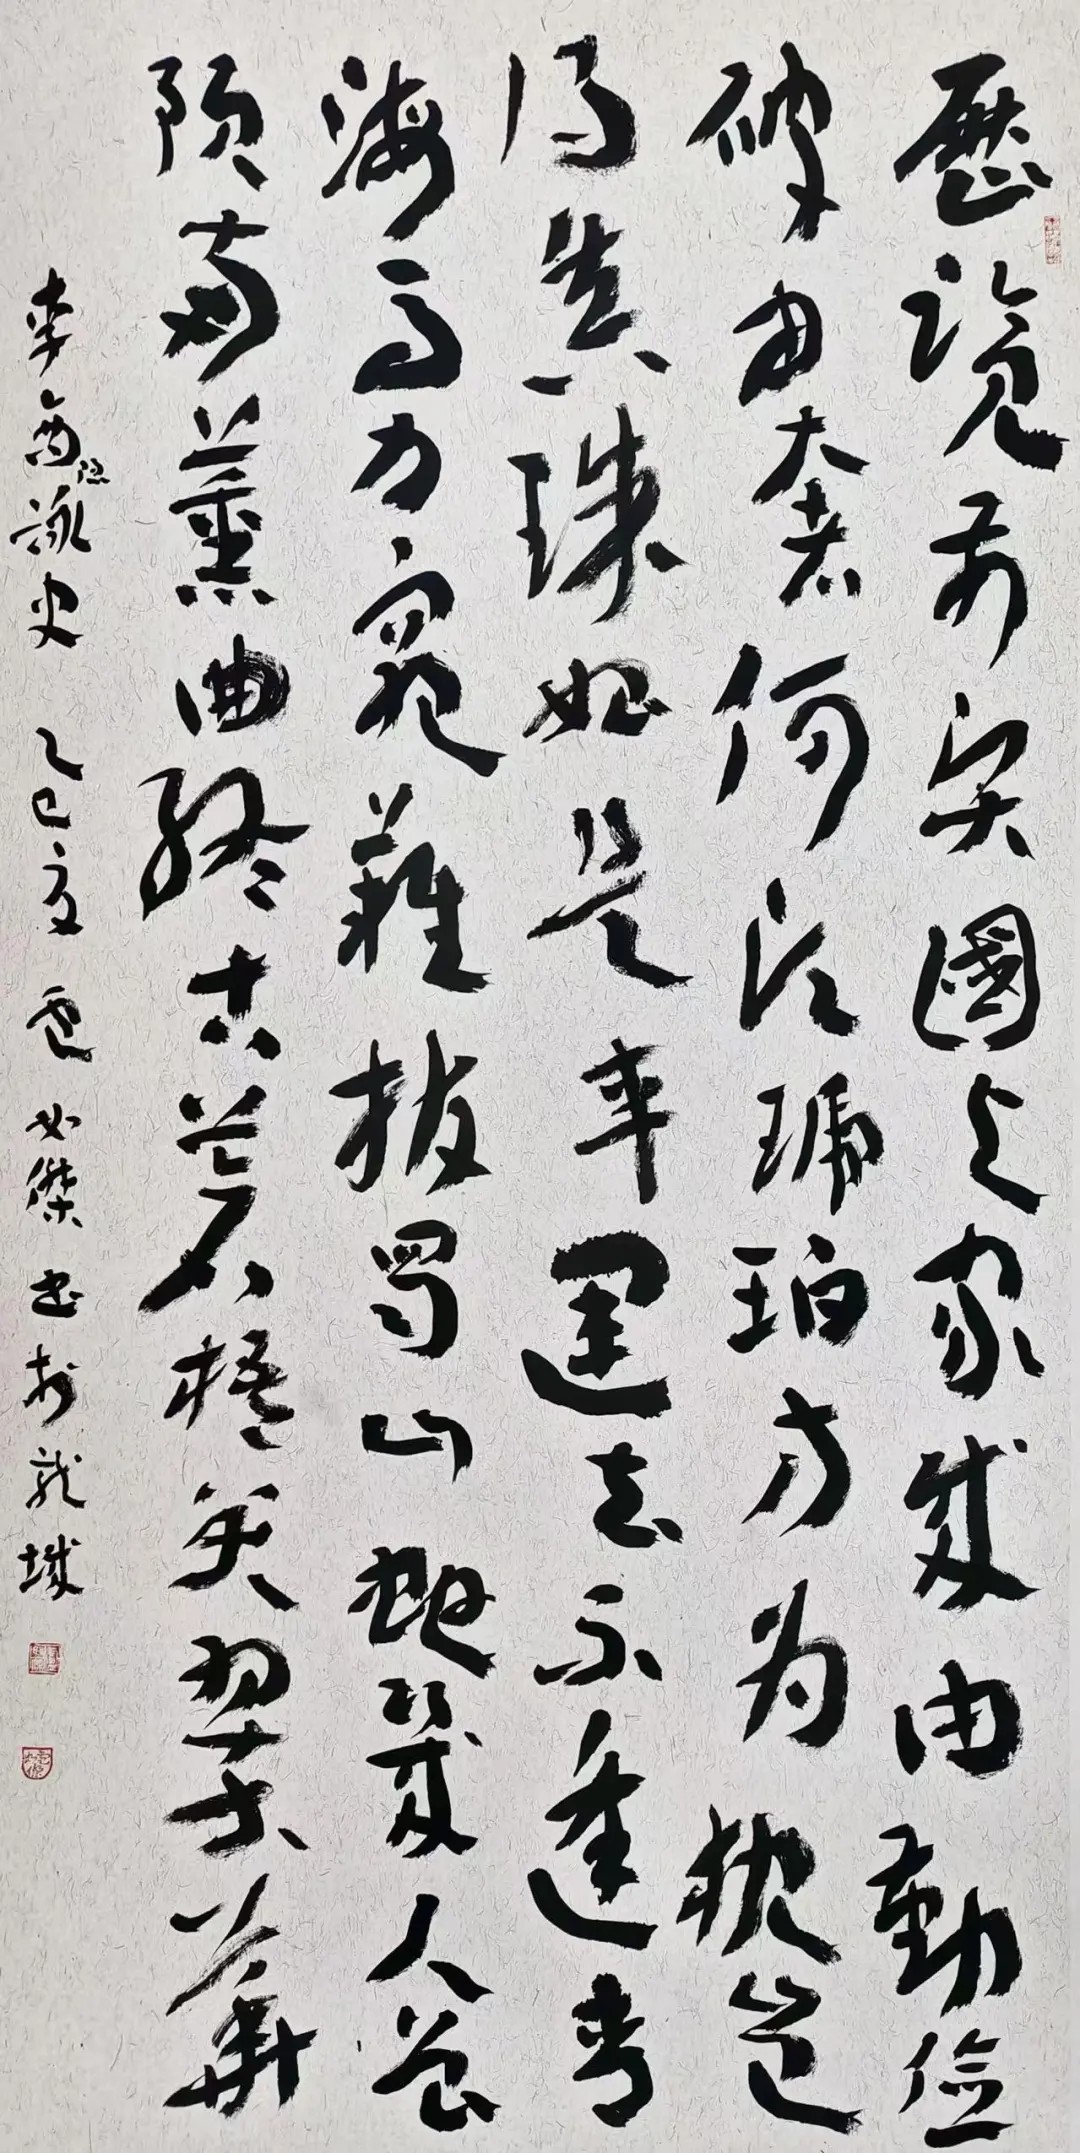 歷覽前賢國与家成由勤儉
破由奢何須琥珀方为枕豈
得真珠始是車運去不逢青
海馬力窮難拔蜀山蛇幾人曾
預南薰曲終古蒼梧哭翠華
李商隐詠史 乙巳夏 如傑書於龍城